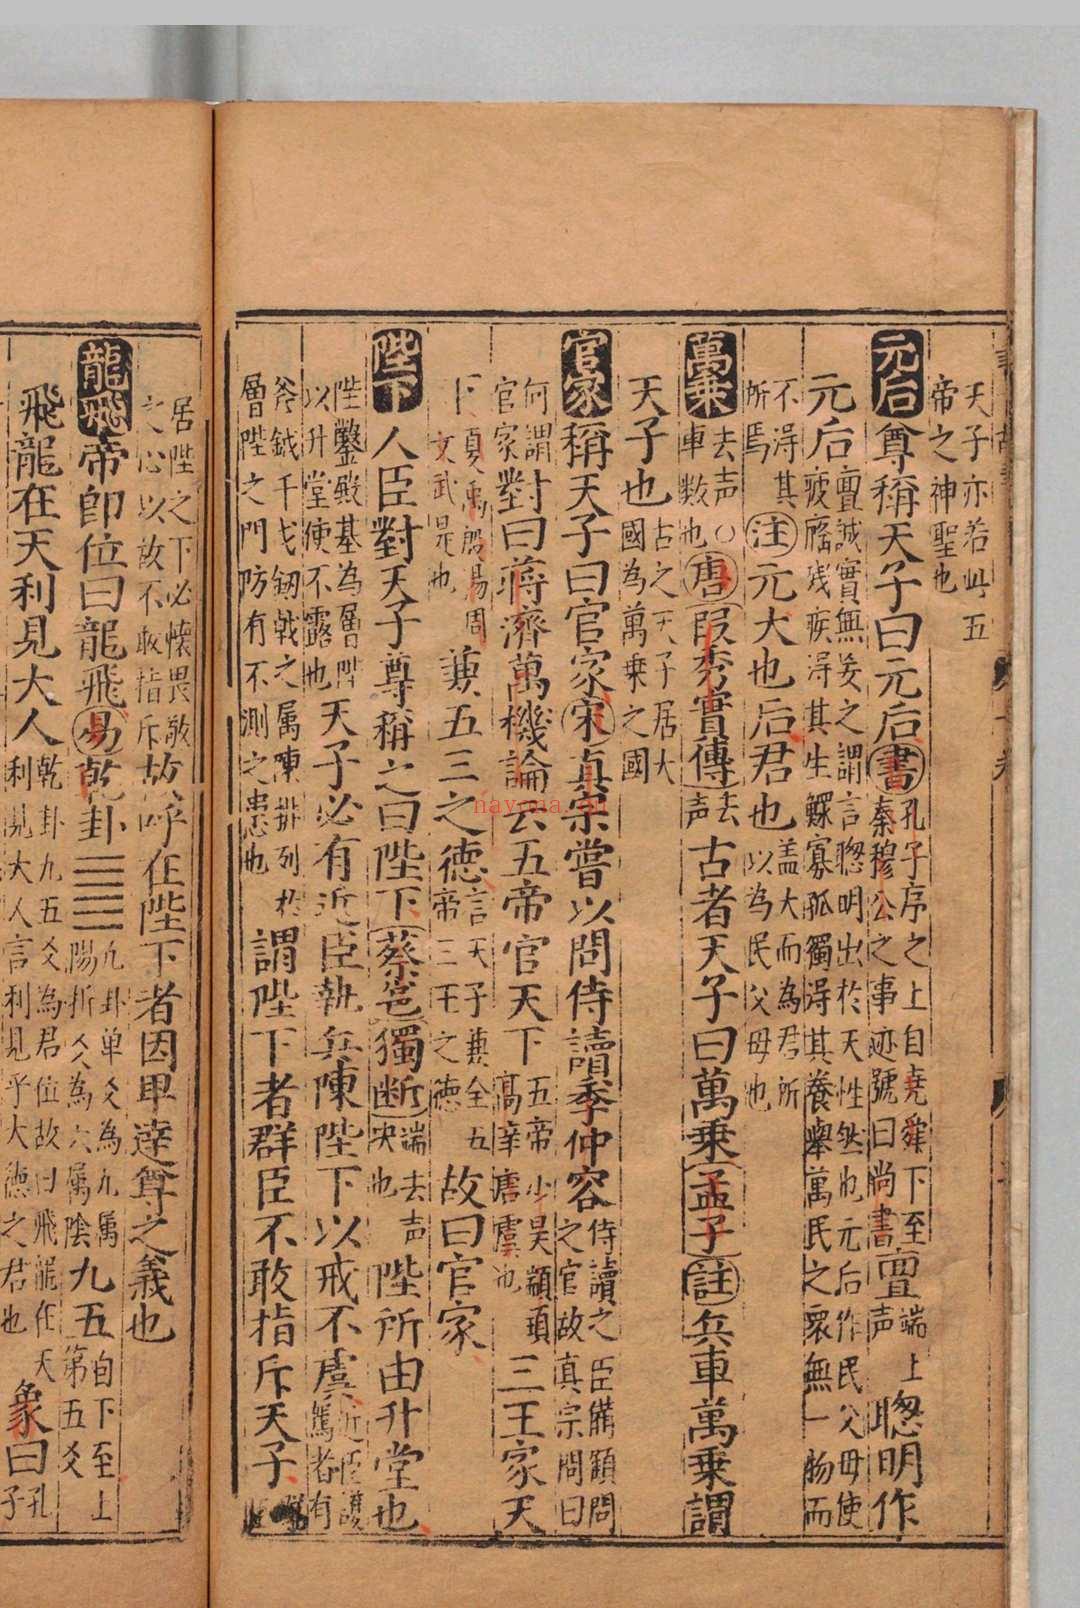 天子亦若此五
帝之神聖也
元后尊稱天子曰元后書孔子序之上自堯舜下至
秦穆公之事迹號曰尚書亶端上
声聰明作
元后亶誠實無妄之謂言聰明出於天性然也元后作民父母使
疲癃残疾得其生鰥寡孤獨得其養舉萬民之眾無一物而
不得其
所焉注元大也后君也盖大而為君所
以為民父母也
萬乗去声○
車数也唐段秀實傳去
声古者天子曰萬乗孟子註兵車萬乗謂
天子也古之天子居大
國為萬乗之國
官家稱天子曰官家宋真宗嘗以問侍讀季仲容侍讀之臣備顧問
之官故真宗問曰
何謂
官家對曰蔣濟萬機論云五帝官天下五帝少昊顓頊
高辛唐虞也三王家天
下夏禹殷湯周
文武是也兼五三之德言天子兼全五
帝三王之德故曰官家
陛下人臣對天子尊稱之曰陛下蔡邕獨断端去声
决也陛所由升堂也
陛鑿殿基為層陛
以升堂使不露也天子必有近臣執兵陳陛下以戒不虞近臣護
駕者有
斧鉞干戈剱戟之属陳排列於
層陛之門防有不測之患也謂陛下者群臣不敢指斥天子
居陛之下必懷畏敬
之心以故不敢指斥故呼在陛下者因卑達尊之義也
龍飛帝即位曰龍飛易乾卦九卦单爻為九属
陽折爻為六属陰九五自下至上
第五爻
飛龍在天利見大人乾卦九五爻為君位故曰飛龍在天
利見大人言利見乎大德之君也象曰孔
子
nayona.cn